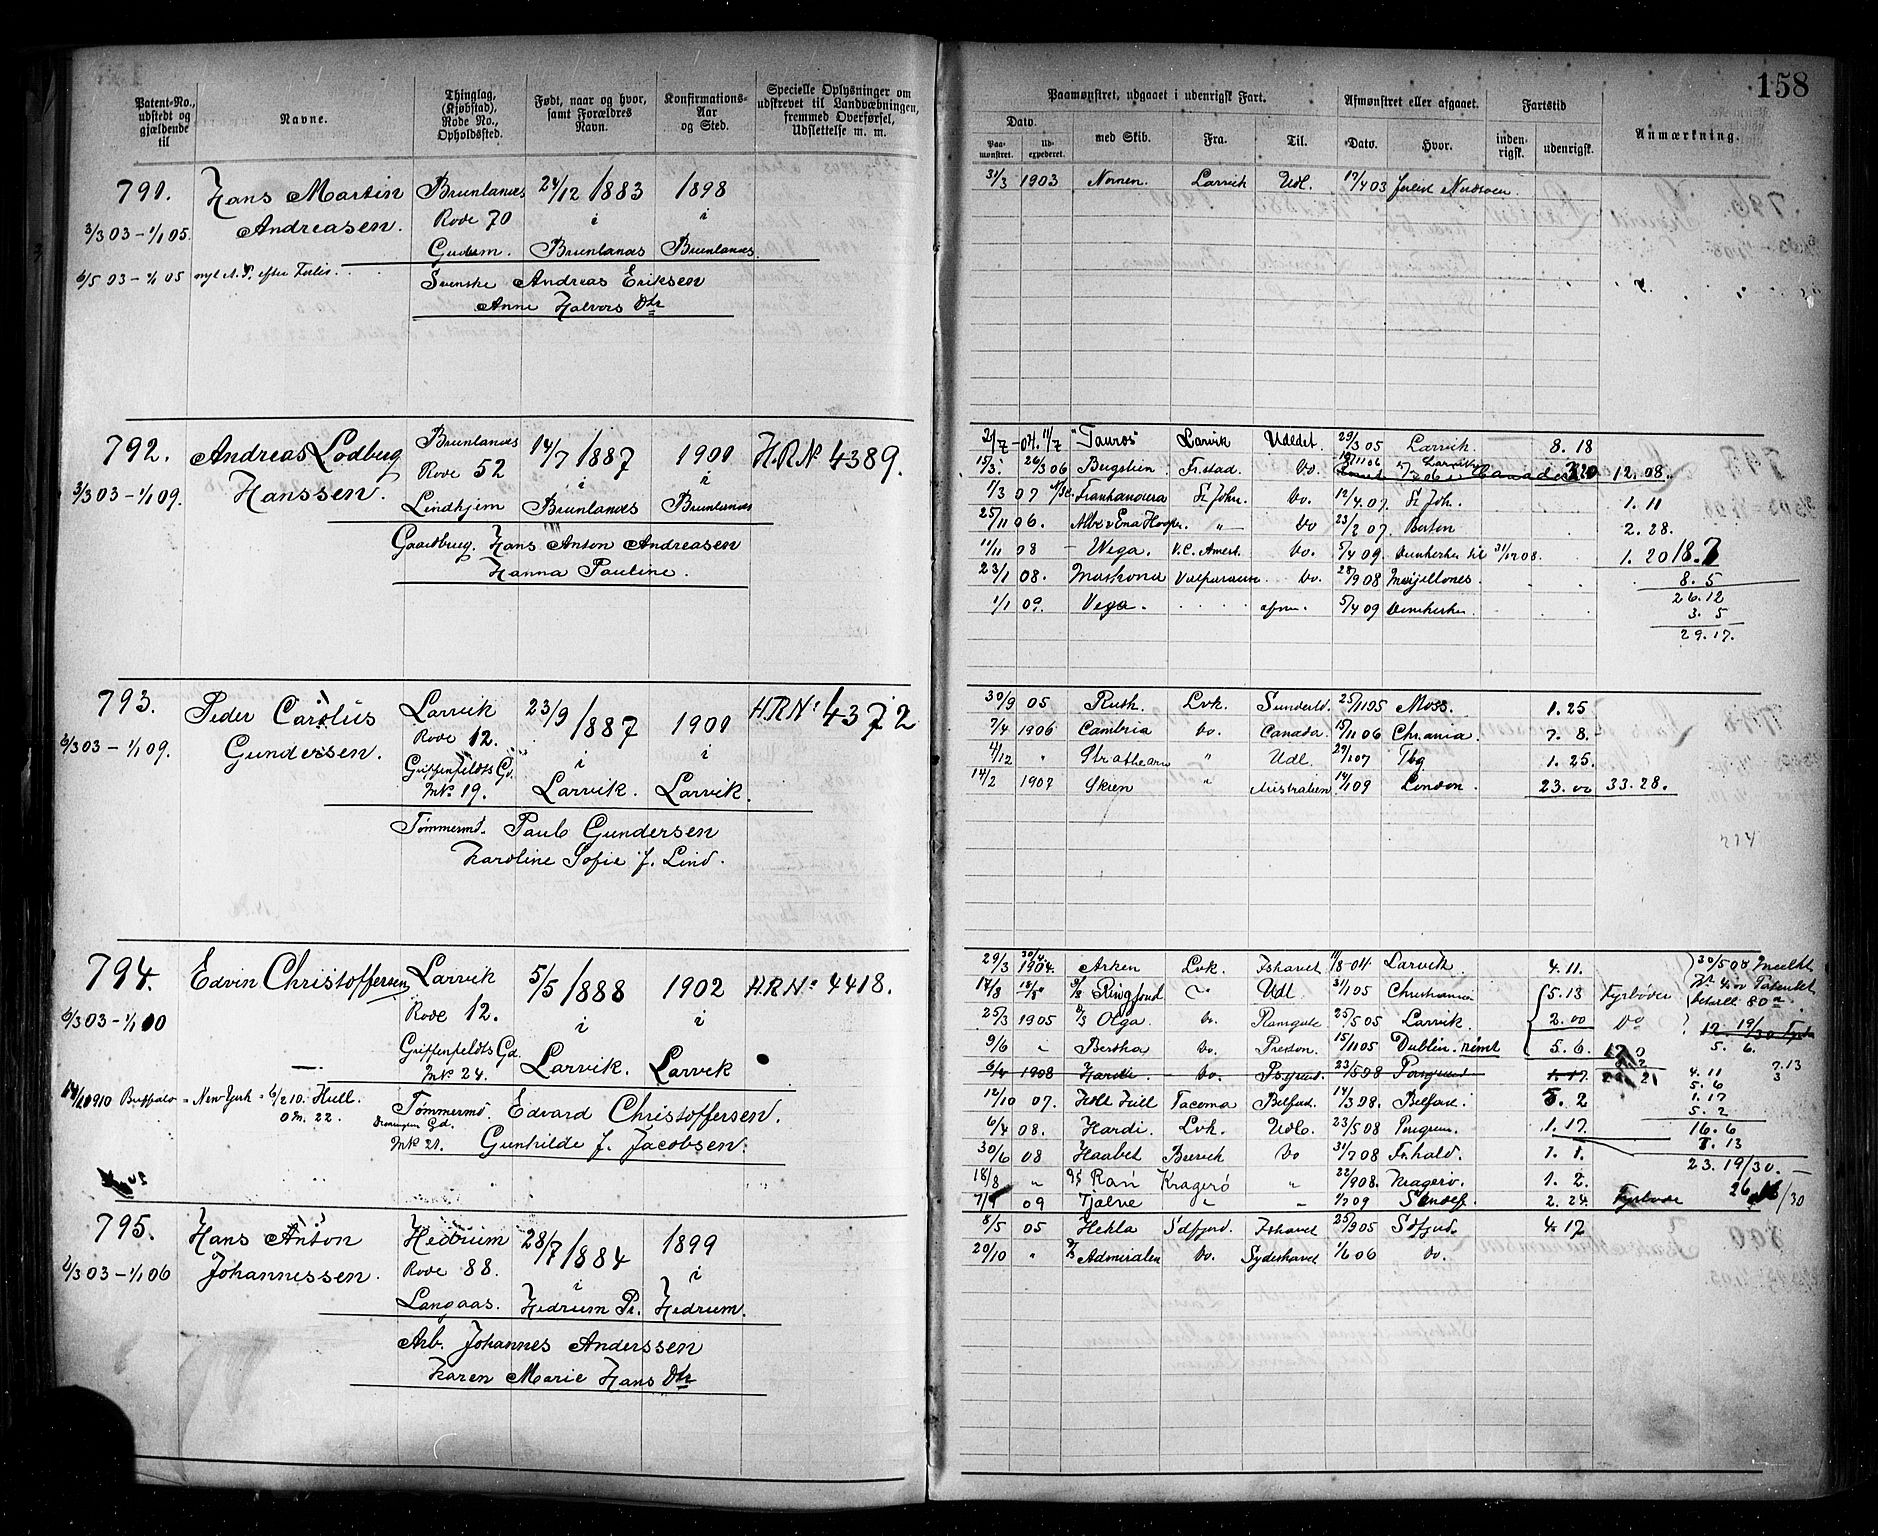 158
Patent-No., udstedt og gjældende til
Navne.
Thinglag, (Kjøbstad), Rode No., Opholdssted.
Født, naar og hvor, samt Forældres Navn.
Konfirmations-Aar og Sted.
Specielle Oplysninger om udskrevet til Landværningen, fremmed Overførsel, Udslettelse m. m.
Paamønstret, udgaaet i udenrigsk Fart.
Afmønstret eller afgaaet.
Fartstid
Anmærkning.
Dato.
Paa-mønstret.
Ud-expederet.
med Skib.
Fra.
Til.
Dato.
Hvor.
inden-rigsk.
udenrigsk.
791. Hans Martin Brunlanæs 24/12 1883 1898
3/3 03 - 1/1 05. Andreasen. Rode 70 i i
Gudem. Brunlanæs Brunlanæs.
6/5 03 - 1/1 05 nyt A. P. efter Forlis.
Svenske Andreas Eriksen
Anne Halvors Dtr
31/3 1903 Nornen. Larvik Udl. 17/4 03
792. Andreas Lodberg Brunlanæs 14/7 1887 1900 H.R.No 4389.
3/3 03 - 1/1 09. Hanssen. Rode 52 i i
Lindhjem Brunlanæs Brunlanæs
Gaardbrug. Hans Anton Andreasen
Hanna Pauline.
"Tauros" Larvik Udledet 29/3 05 Larvik 8. 18
15/3. 26/3 06 Bergslien. Fr.stad. Do. 12. 08.
1/3 07 St John. Do. 12/4 07. St Joh. 1. 11
25/11 06. " Do 23/2 07. Boston 2. 28.
11/11 08 - Wega. V.C. Amerk. Do. 5/4 09. Dunkerke til 31/12 08. 1. 20 18. 7
23/1 08. Valparaiso. Do. 28/9 08 Mejillones. 8. 5
26. 12
1/1 09. Vega. afm. 5/4 09 Dunkerke. 3. 5
29. 17.
793. Peder Carolius Larvik 23/9 1887 1900 H.R.No 4372
6/3 03 - 1/1 09. Gundersen. Rode 12. i i
Griffenfeldts Gd.
MNo 19. Larvik. Larvik.
Tømmermd. Paul Gundersen
Karoline Sofie J. Lind.
30/9 05 Ruth. Lvk. Sunderld. 25/11 05 Moss. 1. 25
7/4 1906 Cambria Do. Canada. 15/11 06 Chr.ania. 7. 8.
4/12 " Strathearn " Udl. 29/1 07 Tbg 1. 25.
14/2 1907 Skien " Australien. 14/1 09 London. 23. 00 33. 28.
794. Edvin Christoffersen Larvik 5/5 1888 1902 H.R.No 4418.
6/3 03 - 1/1 10 Rode 12. i i
Griffenfeldts Gd.
MNo 24. Larvik. Larvik
1910 Buffalo - New York - 6/2 10. Hull.
Om. 22.
Tømmermd. Edvard Christoffersen.
MNo 21. Gunhilde J. Jacobsen.
29/3 30/4 1904. Arken Lvk. Ishavet 11/8 04 Larvik. 4. 11.
17/8 18/8 S/S Ringfond " Udl. 31/1 05 Christiania 5. 13 Fyrbøder
25/3 1905 S/S Olga. Do. Ramsgate 25/5 05 Larvik. 2. 00 Do
9/6 " Bertha Do. Preston. 15/11 05 Dublin. rømt 5. 6.
6/4 1908 Hardi. Do. 23/5 08 1. 17.
12/10 07. Holt Hill Tacoma Belfast. 14/3 08. Belfast. 5. 2
6/4 08. Hardi. Lvk. Udl. 23/5 08 1. 17.
30/6 08 Haabet Brevik Do 31/7 08 Fr.hald. 1. 1.
18/8 " D/S Ran Kragerø " 22/9 08. Kragerø. 1. 2.
09 Tjalve " " 1/7 09 Sandef. 2. 24. Fyrbøder
30/5 08 Meldt
betalt 80 øre
4. 11
5. 6
1. 17
5. 2
16. 6
7. 13
23. 19/30.
795. Hans Anton Hedrum 28/7 1884 1899
6/3 03 - 1/1 06 Johannessen. Rode 88. i i
Langaas. Hedrum Pr. Hedrum.
Arb. Johannes Anderssen
Karen Marie Hans Dtr
8/5 05 Hekla Sdfjord. Ishavet 25/9 05 Sdfjord. 4. 17
20/10 " D/S Admiralen Do. Sydishavet 1/6 06 Do.